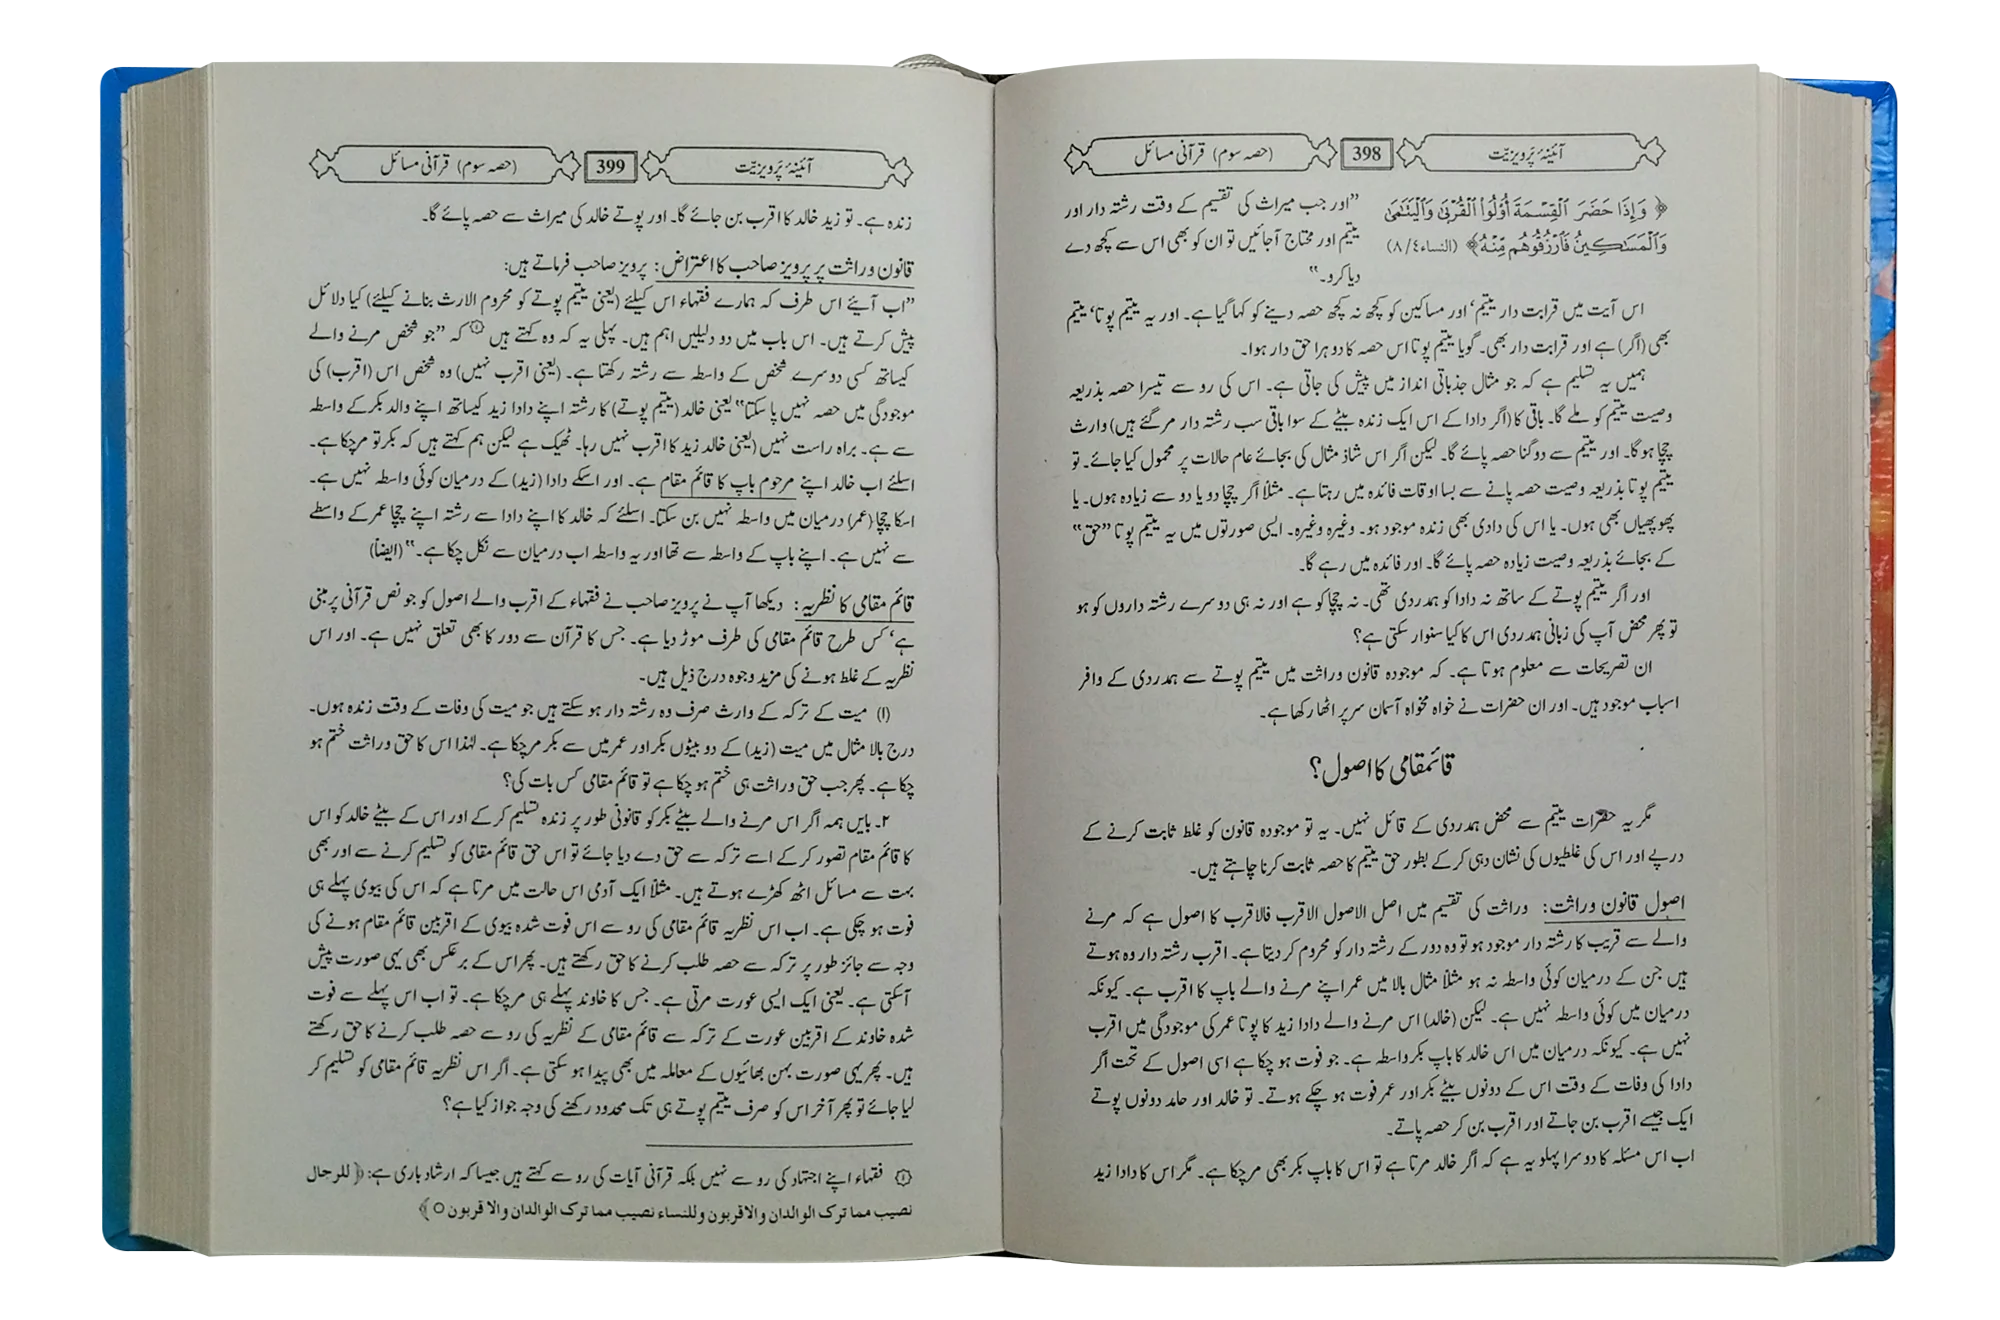 آئینۂ پَرویزیّت 398 (حصہ سوم) قرآنی مسائل
﴿ وَإِذَا حَضَرَ ٱلْقِسْمَةَ أُوْلُوا۟ ٱلْقُرْبَىٰ وَٱلْيَتَـٰمَىٰ
وَٱلْمَسَـٰكِينُ فَٱرْزُقُوهُم مِّنْهُ ﴾ (النساء٤/٨)
”اور جب میراث کی تقسیم کے وقت رشتہ دار اور
یتیم اور محتاج آجائیں تو ان کو بھی اس سے کچھ دے
دیا کرو۔“
اس آیت میں قرابت دار یتیم‘ اور مساکین کو کچھ نہ کچھ حصہ دینے کو کہا گیا ہے۔ اور یہ یتیم پوتا‘ یتیم
بھی (اگر) ہے اور قرابت دار بھی۔ گویا یتیم پوتا اس حصہ کا دوہرا حق دار ہوا۔
ہمیں یہ تسلیم ہے کہ جو مثال جذباتی انداز میں پیش کی جاتی ہے۔ اس کی رو سے تیسرا حصہ بذریعہ
وصیت یتیم کو ملے گا۔ باقی کا (اگر دادا کے اس ایک زندہ بیٹے کے سوا باقی سب رشتہ دار مر گئے ہیں) وارث
چچا ہو گا۔ اور یتیم سے دوگنا حصہ پائے گا۔ لیکن اگر اس شاذ مثال کی بجائے عام حالات پر محمول کیا جائے۔ تو
یتیم پوتا بذریعہ وصیت حصہ پانے سے بسا اوقات فائدہ میں رہتا ہے۔ مثلاً اگر چچا دو یا دو سے زیادہ ہوں۔ یا
پھوپھیاں بھی ہوں۔ یا اس کی دادی بھی زندہ موجود ہو۔ وغیرہ وغیرہ۔ ایسی صورتوں میں یہ یتیم پوتا ”حق“
کے بجائے بذریعہ وصیت زیادہ حصہ پائے گا۔ اور فائدہ میں رہے گا۔
اور اگر یتیم پوتے کے ساتھ نہ دادا کو ہمدردی تھی۔ نہ چچا کو ہے اور نہ ہی دوسرے رشتہ داروں کو ہو
تو پھر محض آپ کی زبانی ہمدردی اس کا کیا سنوار سکتی ہے؟
ان تصریحات سے معلوم ہوتا ہے۔ کہ موجودہ قانون وراثت میں یتیم پوتے سے ہمدردی کے وافر
اسباب موجود ہیں۔ اور ان حضرات نے خواہ مخواہ آسمان سر پر اٹھا رکھا ہے۔
قائمقامی کا اصول؟
مگر یہ حضرات یتیم سے محض ہمدردی کے قائل نہیں۔ یہ تو موجودہ قانون کو غلط ثابت کرنے کے
درپے اور اس کی غلطیوں کی نشان دہی کر کے بطور حق یتیم کا حصہ ثابت کرنا چاہتے ہیں۔
اصول قانون وراثت: وراثت کی تقسیم میں اصل الاصول الاقرب فالاقرب کا اصول ہے کہ مرنے
والے سے قریب کا رشتہ دار موجود ہو تو وہ دور کے رشتہ دار کو محروم کر دیتا ہے۔ اقرب رشتہ دار وہ ہوتے
ہیں جن کے درمیان کوئی واسطہ نہ ہو مثلاً مثال بالا میں عمر اپنے مرنے والے باپ کا اقرب ہے۔ کیونکہ
درمیان میں کوئی واسطہ نہیں ہے۔ لیکن (خالد) اس مرنے والے دادا زید کا پوتا عمر کی موجودگی میں اقرب
نہیں ہے۔ کیونکہ درمیان میں اس خالد کا باپ بکر واسطہ ہے۔ جو فوت ہو چکا ہے اسی اصول کے تحت اگر
دادا کی وفات کے وقت اس کے دونوں بیٹے بکر اور عمر فوت ہو چکے ہوتے۔ تو خالد اور حامد دونوں پوتے
ایک جیسے اقرب بن جاتے اور اقرب بن کر حصہ پاتے۔
اب اس مسئلہ کا دوسرا پہلو یہ ہے کہ اگر خالد مرتا ہے تو اس کا باپ بکر بھی مر چکا ہے۔ مگر اس کا دادا زید
آئینۂ پَرویزیّت 399 (حصہ سوم) قرآنی مسائل
زندہ ہے۔ تو زید خالد کا اقرب بن جائے گا۔ اور پوتے خالد کی میراث سے حصہ پائے گا۔
قانون وراثت پر پرویز صاحب کا اعتراض: پرویز صاحب فرماتے ہیں:
”اب آیئے اس طرف کہ ہمارے فقہاء اس کیلئے (یعنی یتیم پوتے کو محروم الارث بنانے کیلئے) کیا دلائل
پیش کرتے ہیں۔ اس باب میں دو دلیلیں اہم ہیں۔ پہلی یہ کہ وہ کہتے ہیں ۱ کہ ”جو شخص مرنے والے
کیساتھ کسی دوسرے شخص کے واسطہ سے رشتہ رکھتا ہے۔ (یعنی اقرب نہیں) وہ شخص اس (اقرب) کی
موجودگی میں حصہ نہیں پا سکتا“ یعنی خالد (یتیم پوتے) کا رشتہ اپنے دادا زید کیساتھ اپنے والد بکر کے واسطہ
سے ہے۔ براہ راست نہیں (یعنی خالد زید کا اقرب نہیں رہا۔ ٹھیک ہے لیکن ہم کہتے ہیں کہ بکر تو مر چکا ہے۔
اسلئے اب خالد اپنے مرحوم باپ کا قائم مقام ہے۔ اور اسکے دادا (زید) کے درمیان کوئی واسطہ نہیں ہے۔
اسکا چچا (عمر) درمیان میں واسطہ نہیں بن سکتا۔ اسلئے کہ خالد کا اپنے دادا سے رشتہ اپنے چچا عمر کے واسطے
سے نہیں ہے۔ اپنے باپ کے واسطہ سے تھا اور یہ واسطہ اب درمیان سے نکل چکا ہے۔“ (ایضاً)
قائم مقامی کا نظریہ: دیکھا آپ نے پرویز صاحب نے فقہاء کے اقرب والے اصول کو جو نص قرآنی پر مبنی
ہے‘ کس طرح قائم مقامی کی طرف موڑ دیا ہے۔ جس کا قرآن سے دور کا بھی تعلق نہیں ہے۔ اور اس
نظریہ کے غلط ہونے کی مزید وجوہ درج ذیل ہیں۔
(۱) میت کے ترکہ کے وارث صرف وہ رشتہ دار ہو سکتے ہیں جو میت کی وفات کے وقت زندہ ہوں۔
درج بالا مثال میں میت (زید) کے دو بیٹوں بکر اور عمر میں سے بکر مر چکا ہے۔ لہٰذا اس کا حق وراثت ختم ہو
چکا ہے۔ پھر جب حق وراثت ہی ختم ہو چکا ہے تو قائم مقامی کس بات کی؟
۲۔ بایں ہمہ اگر اس مرنے والے بیٹے بکر کو قانونی طور پر زندہ تسلیم کر کے اور اس کے بیٹے خالد کو اس
کا قائم مقام تصور کر کے اسے ترکہ سے حق دے دیا جائے تو اس حق قائم مقامی کو تسلیم کرنے سے اور بھی
بہت سے مسائل اٹھ کھڑے ہوتے ہیں۔ مثلاً ایک آدمی اس حالت میں مرتا ہے کہ اس کی بیوی پہلے ہی
فوت ہو چکی ہے۔ اب اس نظریہ قائم مقامی کی رو سے اس فوت شدہ بیوی کے اقربین قائم مقام ہونے کی
وجہ سے جائز طور پر ترکہ سے حصہ طلب کرنے کا حق رکھتے ہیں۔ پھر اس کے برعکس بھی یہی صورت پیش
آسکتی ہے۔ یعنی ایک ایسی عورت مرتی ہے۔ جس کا خاوند پہلے ہی مر چکا ہے۔ تو اب اس پہلے سے فوت
شدہ خاوند کے اقربین عورت کے ترکہ سے قائم مقامی کے نظریہ کی رو سے حصہ طلب کرنے کا حق رکھتے
ہیں۔ پھر یہی صورت بہن بھائیوں کے معاملہ میں بھی پیدا ہو سکتی ہے۔ اگر اس نظریہ قائم مقامی کو تسلیم کر
لیا جائے تو پھر آخر اس کو صرف یتیم پوتے ہی تک محدود رکھنے کی وجہ جواز کیا ہے؟
۱ فقہاء اپنے اجتہاد کی رو سے نہیں بلکہ قرآنی آیات کی رو سے کہتے ہیں جیسا کہ ارشاد باری ہے: ﴿ للرجال
نصیب مما ترک الوالدان والاقربون وللنساء نصیب مما ترک الوالدان والاقربون ○ ﴾